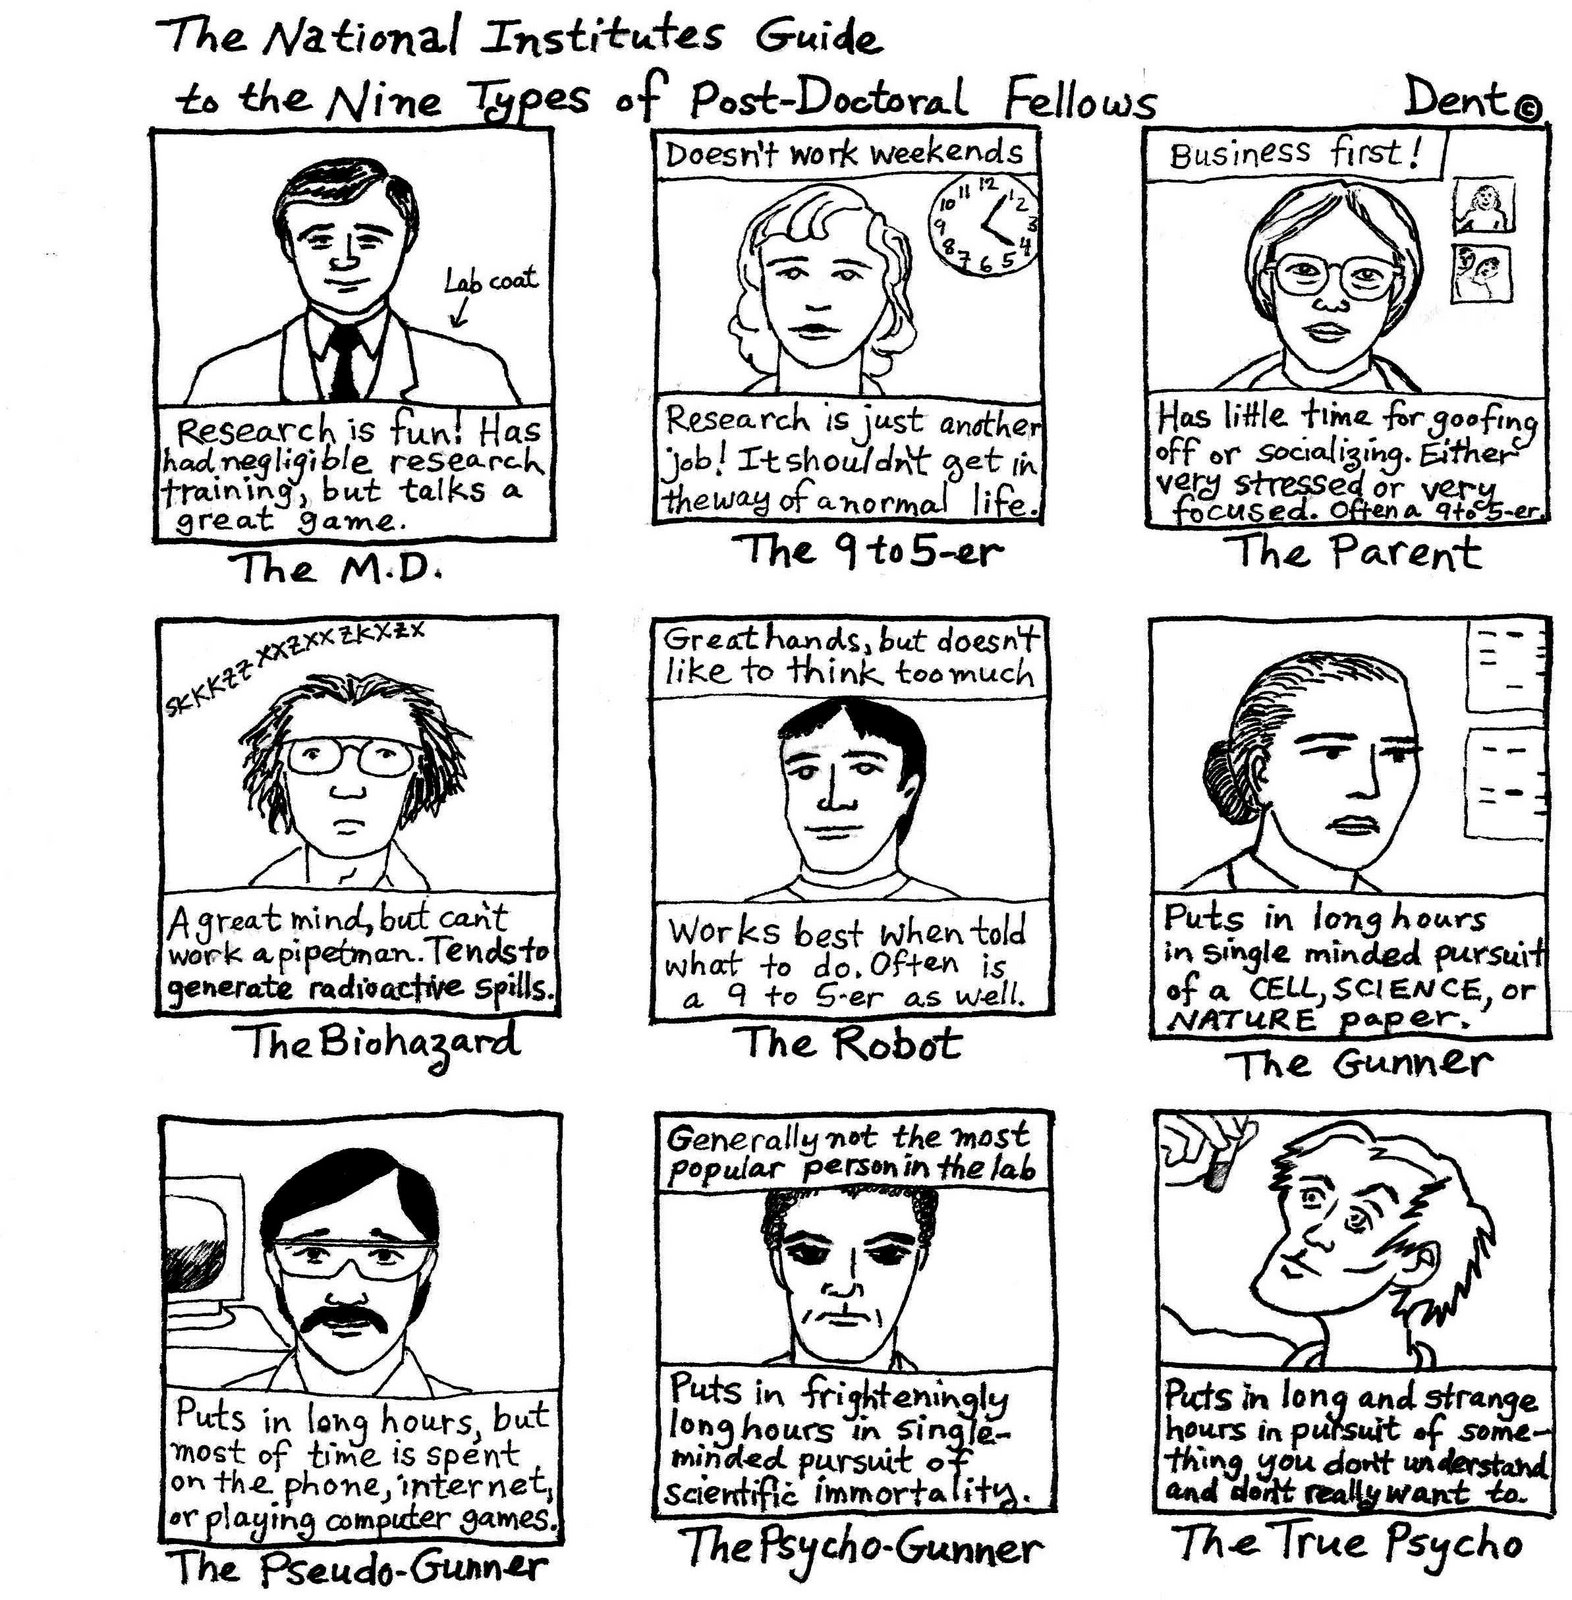 The National Institutes Guide
to the Nine Types of Post-Doctoral Fellows
Dent ©
Lab coat
Research is fun! Has
had negligible research
training, but talks a
great game.
The M.D.
Doesn't work weekends
12
1
2
3
4
5
6
7
8
9
10
11
Research is just another
job! It shouldn't get in
the way of a normal life.
The 9 to 5-er
Business first!
Has little time for goofing
off or socializing. Either
very stressed or very
focused. Often a 9 to 5-er.
The Parent
SKKKZZZXXZXXZKXZX
A great mind, but can't
work a pipetman. Tends to
generate radioactive spills.
The Biohazard
Great hands, but doesn't
like to think too much
Works best when told
what to do. Often is
a 9 to 5-er as well.
The Robot
Puts in long hours
in single minded pursuit
of a CELL, SCIENCE, or
NATURE paper.
The Gunner
Puts in long hours, but
most of time is spent
on the phone, internet,
or playing computer games.
The Pseudo-Gunner
Generally not the most
popular person in the lab
Puts in frighteningly
long hours in single-
minded pursuit of
scientific immortality.
The Psycho-Gunner
Puts in long and strange
hours in pursuit of some-
thing you don't understand
and don't really want to.
The True Psycho